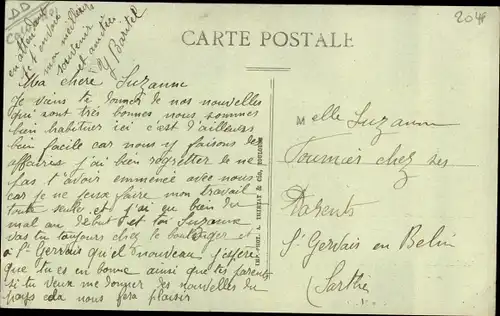 CARTE POSTALE
Ma chère Suzanne
Je viens te donner de nos nouvelles
qui sont très bonnes nous sommes
bien habituer ici c'est d'ailleurs
bien facile car nous y faisons des
affaires j'ai bien regretter de ne
pas t'avoir emmenée avec nous
car je ne peux faire mon travail
toute seule et j'ai eu bien du
mal au début et toi Suzanne
vas tu toujours chez le boulanger et
à St Gervais qu'el nouveau j'espère
que tu es en bonne ainsi que tes parents
si tu veux me donner des nouvelles du
pays cela nous fera plaisir
en attendant
de t'
mon meilleur
souvenir
et amitié
Y
Melle Suzanne
Fournier chez ses
Parents
St Gervais en Belin
(Sarthe